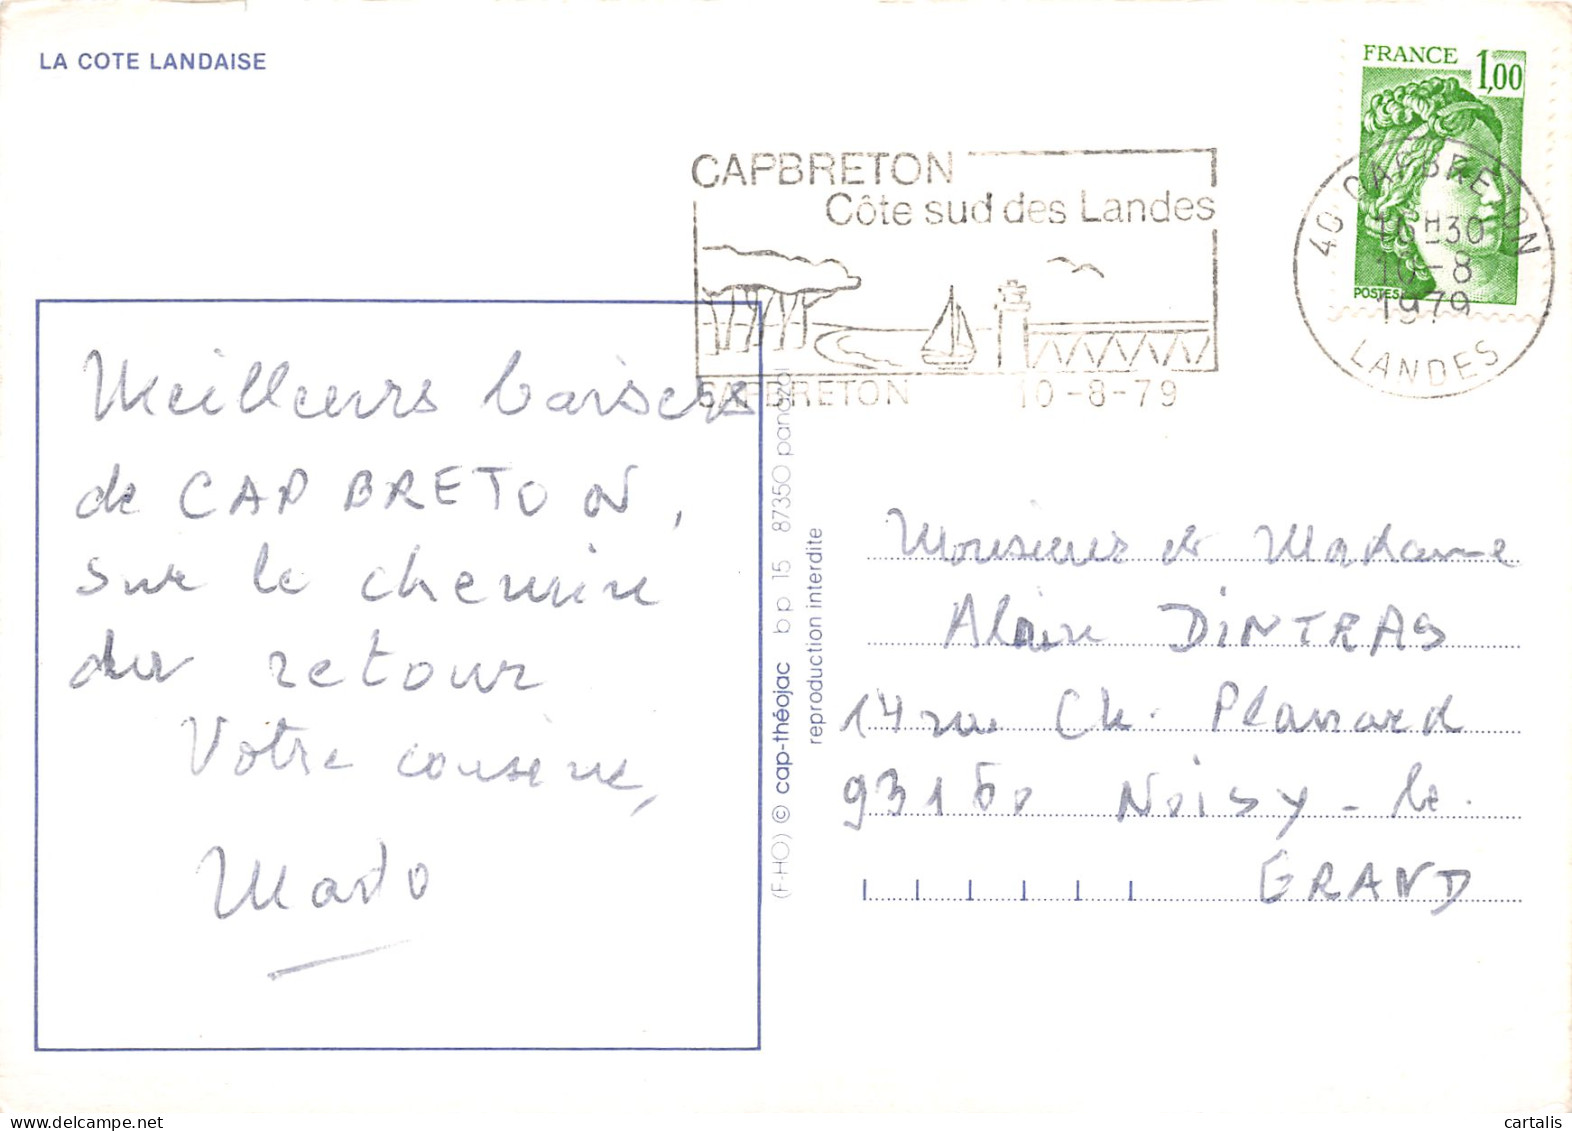 LA COTE LANDAISE
FRANCE 1,00
POSTES
CAPBRETON
Côte sud des Landes
CAPBRETON 10-8-79
40 CAPBRETON
16H30
10-8
1979
LANDES
Meilleurs baisers
de CAP BRETON,
sur le chemin
du retour
Votre cousine,
Mado
(F-HO) © cap-théojac bp 15 87350 panazol
reproduction interdite
Monsieur et Madame
Alain DINTRAS
14 rue Ch. Planard
93160 NOISY-le-
GRAND
cartalis